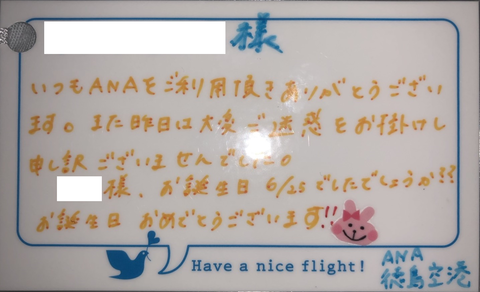 様
いつもANAをご利用頂きありがとうござい
ます。また昨日は大変ご迷惑をお掛けし
申し訳ございませんでした。
様、お誕生日 6/25でしたでしょうか??
お誕生日 おめでとうございます!!
Have a nice flight!
ANA
徳島空港